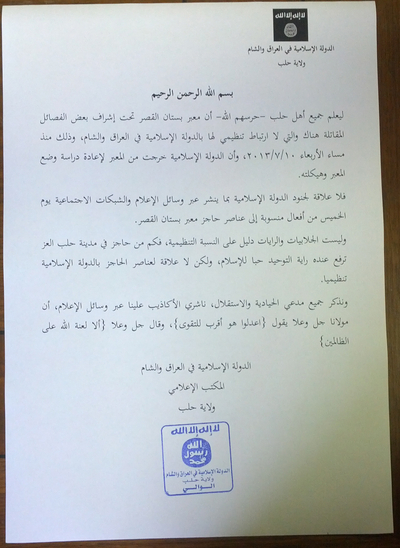 لا إله إلا الله
الله
رسول
محمد
الدولة الإسلامية في العراق والشام
ولاية حلب
بسم الله الرحمن الرحيم
ليعلم جميع أهل حلب -حرسهم الله- أن معبر بستان القصر تحت إشراف بعض الفصائل
المقاتلة هناك والتي لا ارتباط تنظيمي لها بالدولة الإسلامية في العراق والشام، وذلك منذ
مساء الأربعاء ٢٠١٣/٧/١٠، وأن الدولة الإسلامية خرجت من المعبر لإعادة دراسة وضع
المعبر وهيكلته.
فلا علاقة لجنود الدولة الإسلامية بما ينشر عبر وسائل الإعلام والشبكات الاجتماعية يوم
الخميس من أفعال منسوبة إلى عناصر حاجز معبر بستان القصر.
وليست الجلابيات والرايات دليل على النسبة التنظيمية، فكم من حاجز في مدينة حلب العز
ترفع عنده راية التوحيد حبا للإسلام، ولكن لا علاقة لعناصر الحاجز بالدولة الإسلامية
تنظيميا.
ونذكر جميع مدعي الحيادية والاستقلال، ناشري الأكاذيب علينا عبر وسائل الإعلام، أن
مولانا جل وعلا يقول {اعدلوا هو أقرب للتقوى}، وقال جل وعلا {ألا لعنة الله على
الظالمين}
الدولة الإسلامية في العراق والشام
المكتب الإعلامي
ولاية حلب
لا إله إلا الله
الله
رسول
محمد
الدولة الإسلامية في العراق والشام
ولاية حلب
الوالي